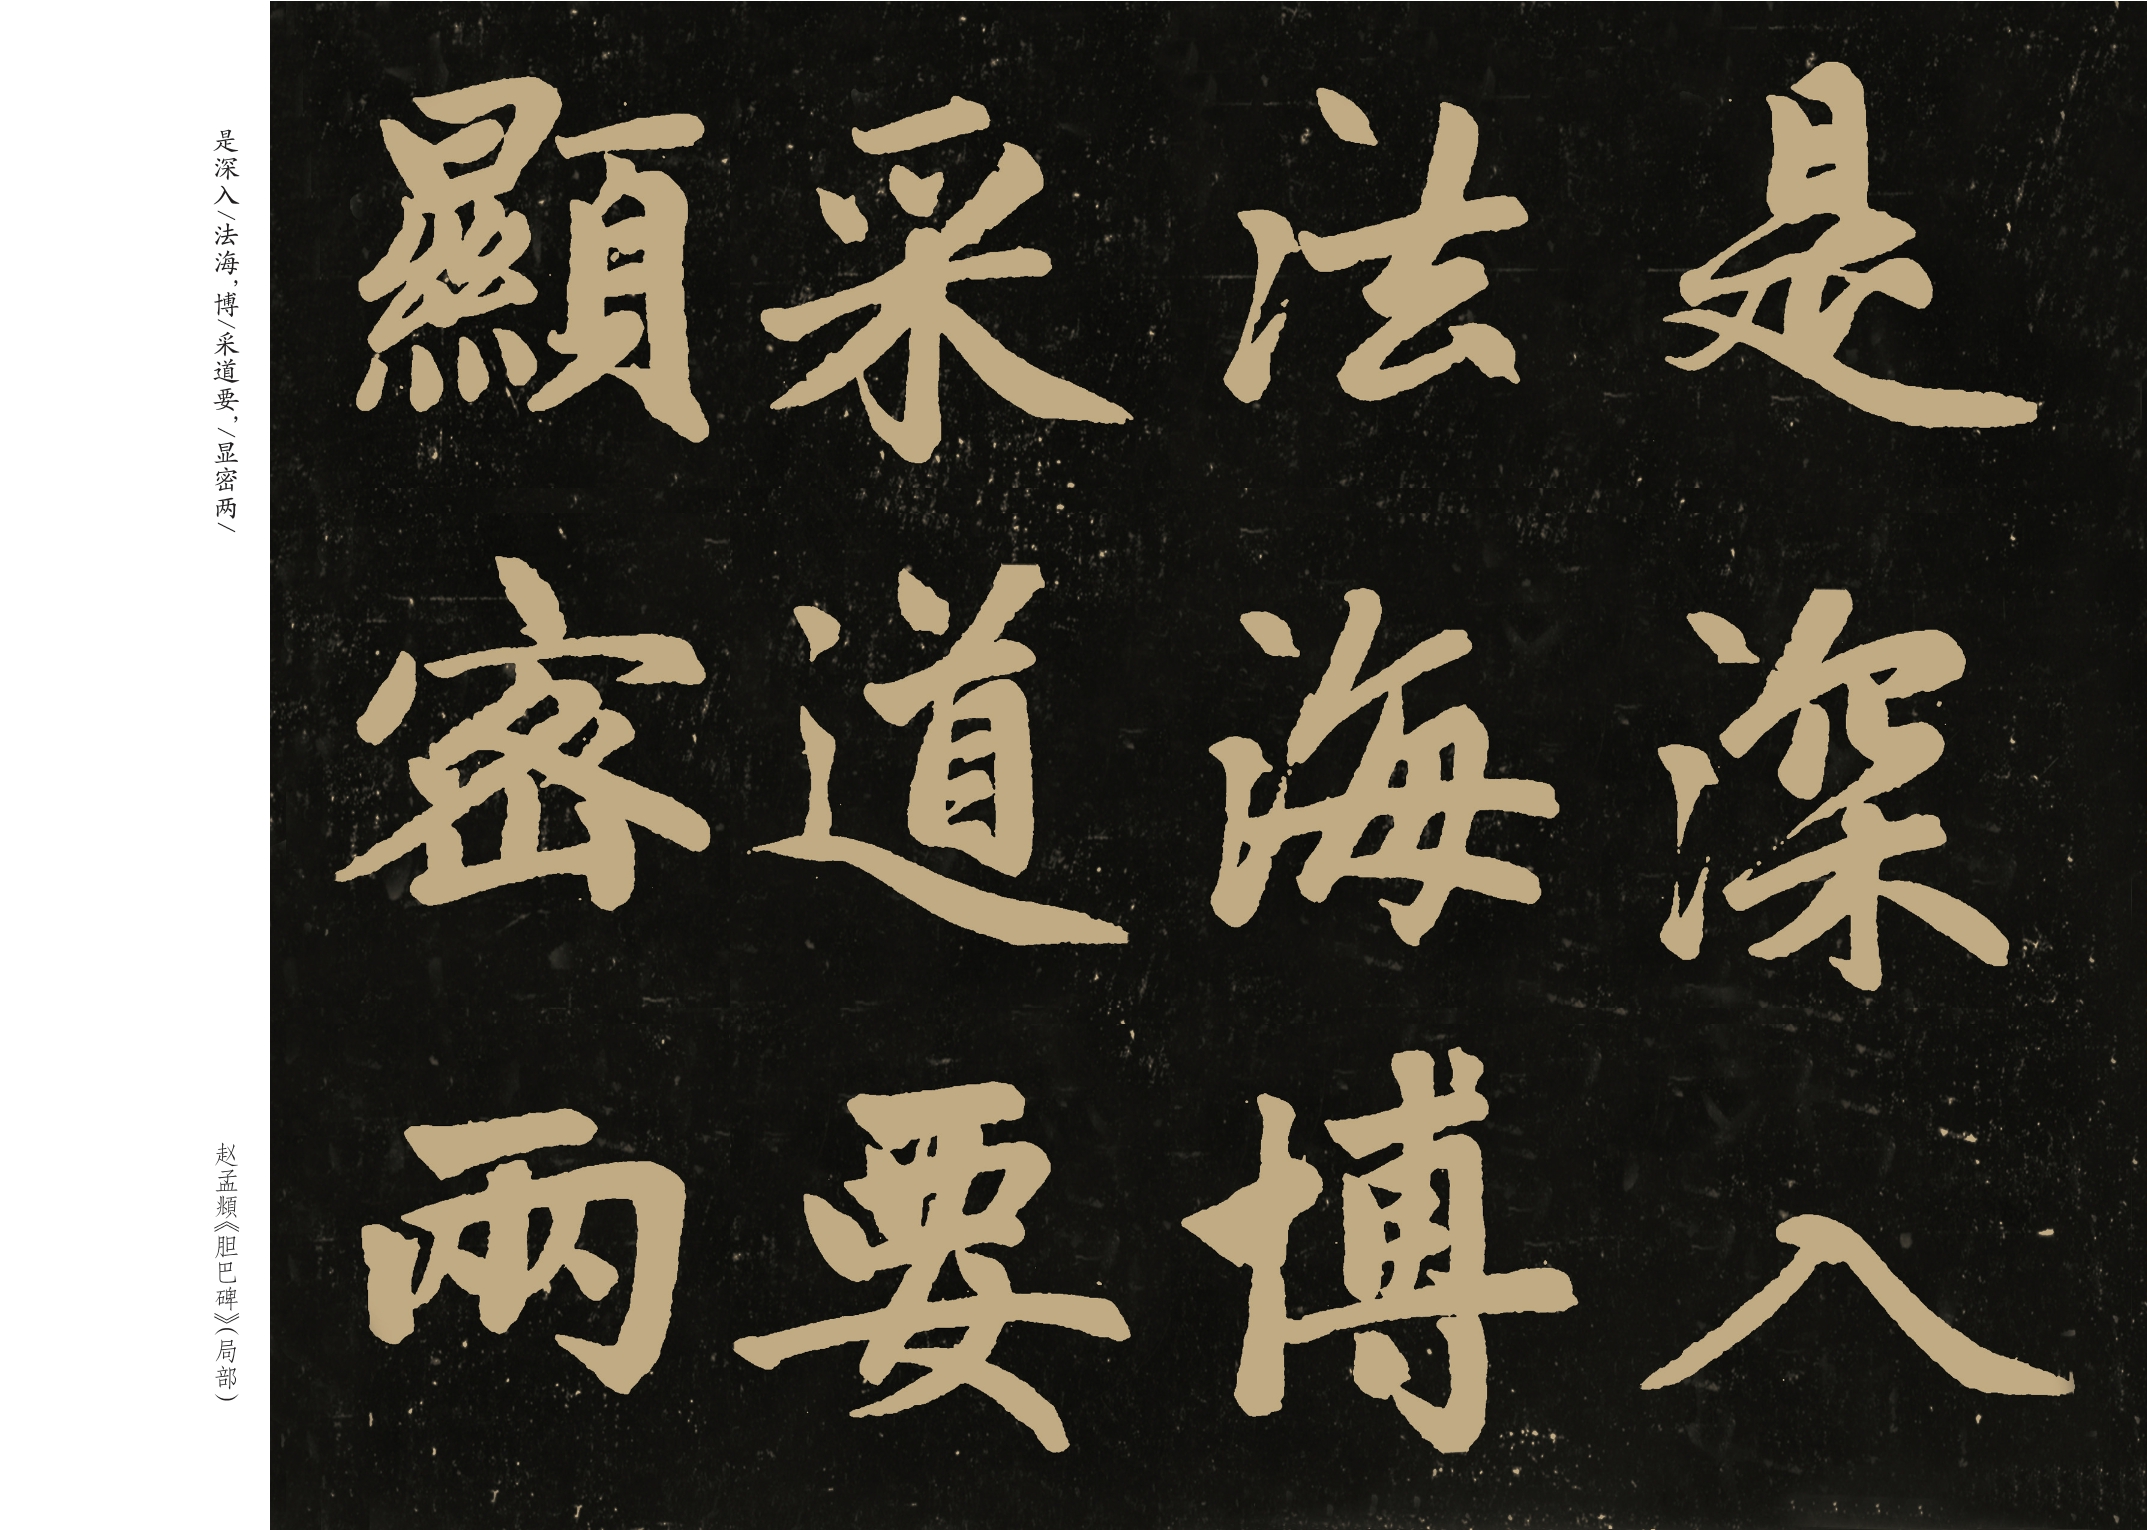 是深入
法海博
采道要
顯密兩
是深入/法海，博/采道要，/显密两/
赵孟頫《胆巴碑》(局部)